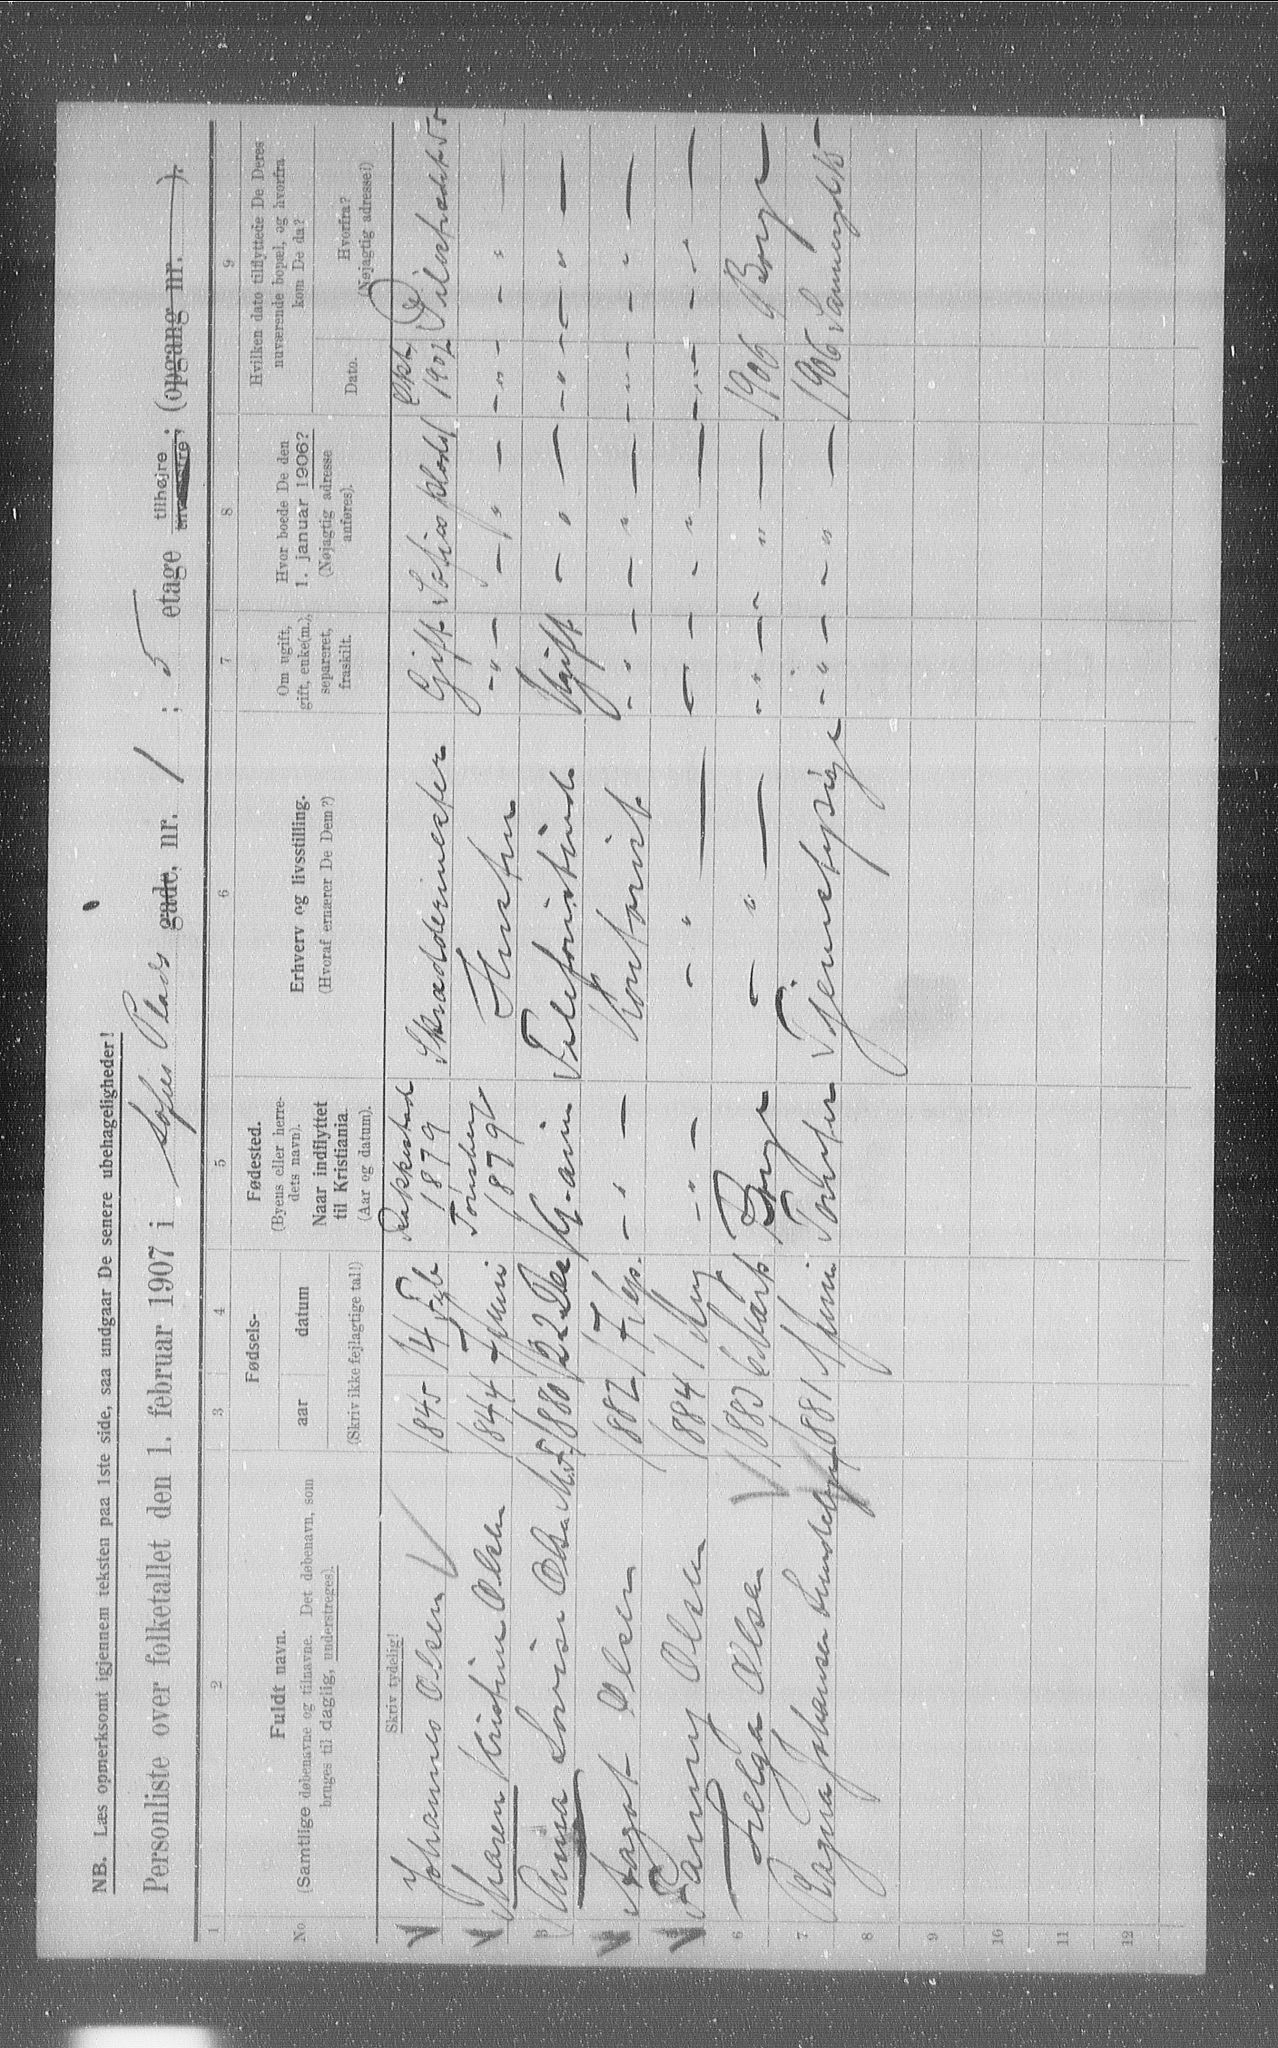 NB. Læs opmerksomt igjennem teksten paa 1ste side, saa undgaar De senere ubehageligheder!
Personliste over folketallet den 1. februar 1907 i Sofies Plads gade, nr. 1 ; 5 etage tilhøjre ; (opgang nr. — ).
1 2 3 4 5 6 7 8 9
No
Fuldt navn.
(Samtlige døbenavne og tilnavne. Det døbenavn, som
bruges til daglig, understreges).
Skriv tydelig!
Fødsels-
aar datum
(Skriv ikke fejlagtige tal!)
Fødested.
(Byens eller herre-
dets navn).
Naar indflyttet
til Kristiania
(Aar og datum).
Erhverv og livsstilling.
(Hvoraf ernærer De Dem?)
Om ugift,
gift, enke(m.),
separeret,
fraskilt.
Hvor boede De den
1. januar 1906?
(Nøjagtig adresse
anføres).
Hvilken dato tilflyttede De Deres
nuværende bopæl, og hvorfra
kom De da?
Dato.
Hvorfra?
(Nøjagtig adresse!)
Johannes Olsen 1845 14 Feb Rakkestad 1879 Skræddermester Gift Sofies Plads 1 Okt 1902 Pilestrædet 50
Maren Kristine Olsen 1844 7 Juni Tønsberg 1879 Hustru — " — — " — — " — — " —
Anna Lovise Olsen 1880 22 Dec Kr.ania Telefonistinde Ugift — " — — " — — " —
Aagot Olsen 1882 17 Sep. — " — Kontorist — " — — " — — " — — " —
Fanny Olsen 1884 1 Aug — " — — " — — — " — — " — — " —
6 Helga Olsen 1883 6 Marts Borge — " — — " — — " — 1906 Borge
7 Ragna Johansen 1881 1 Juni Tjenestepige — " — — " — 1906
8
9
10
11
12